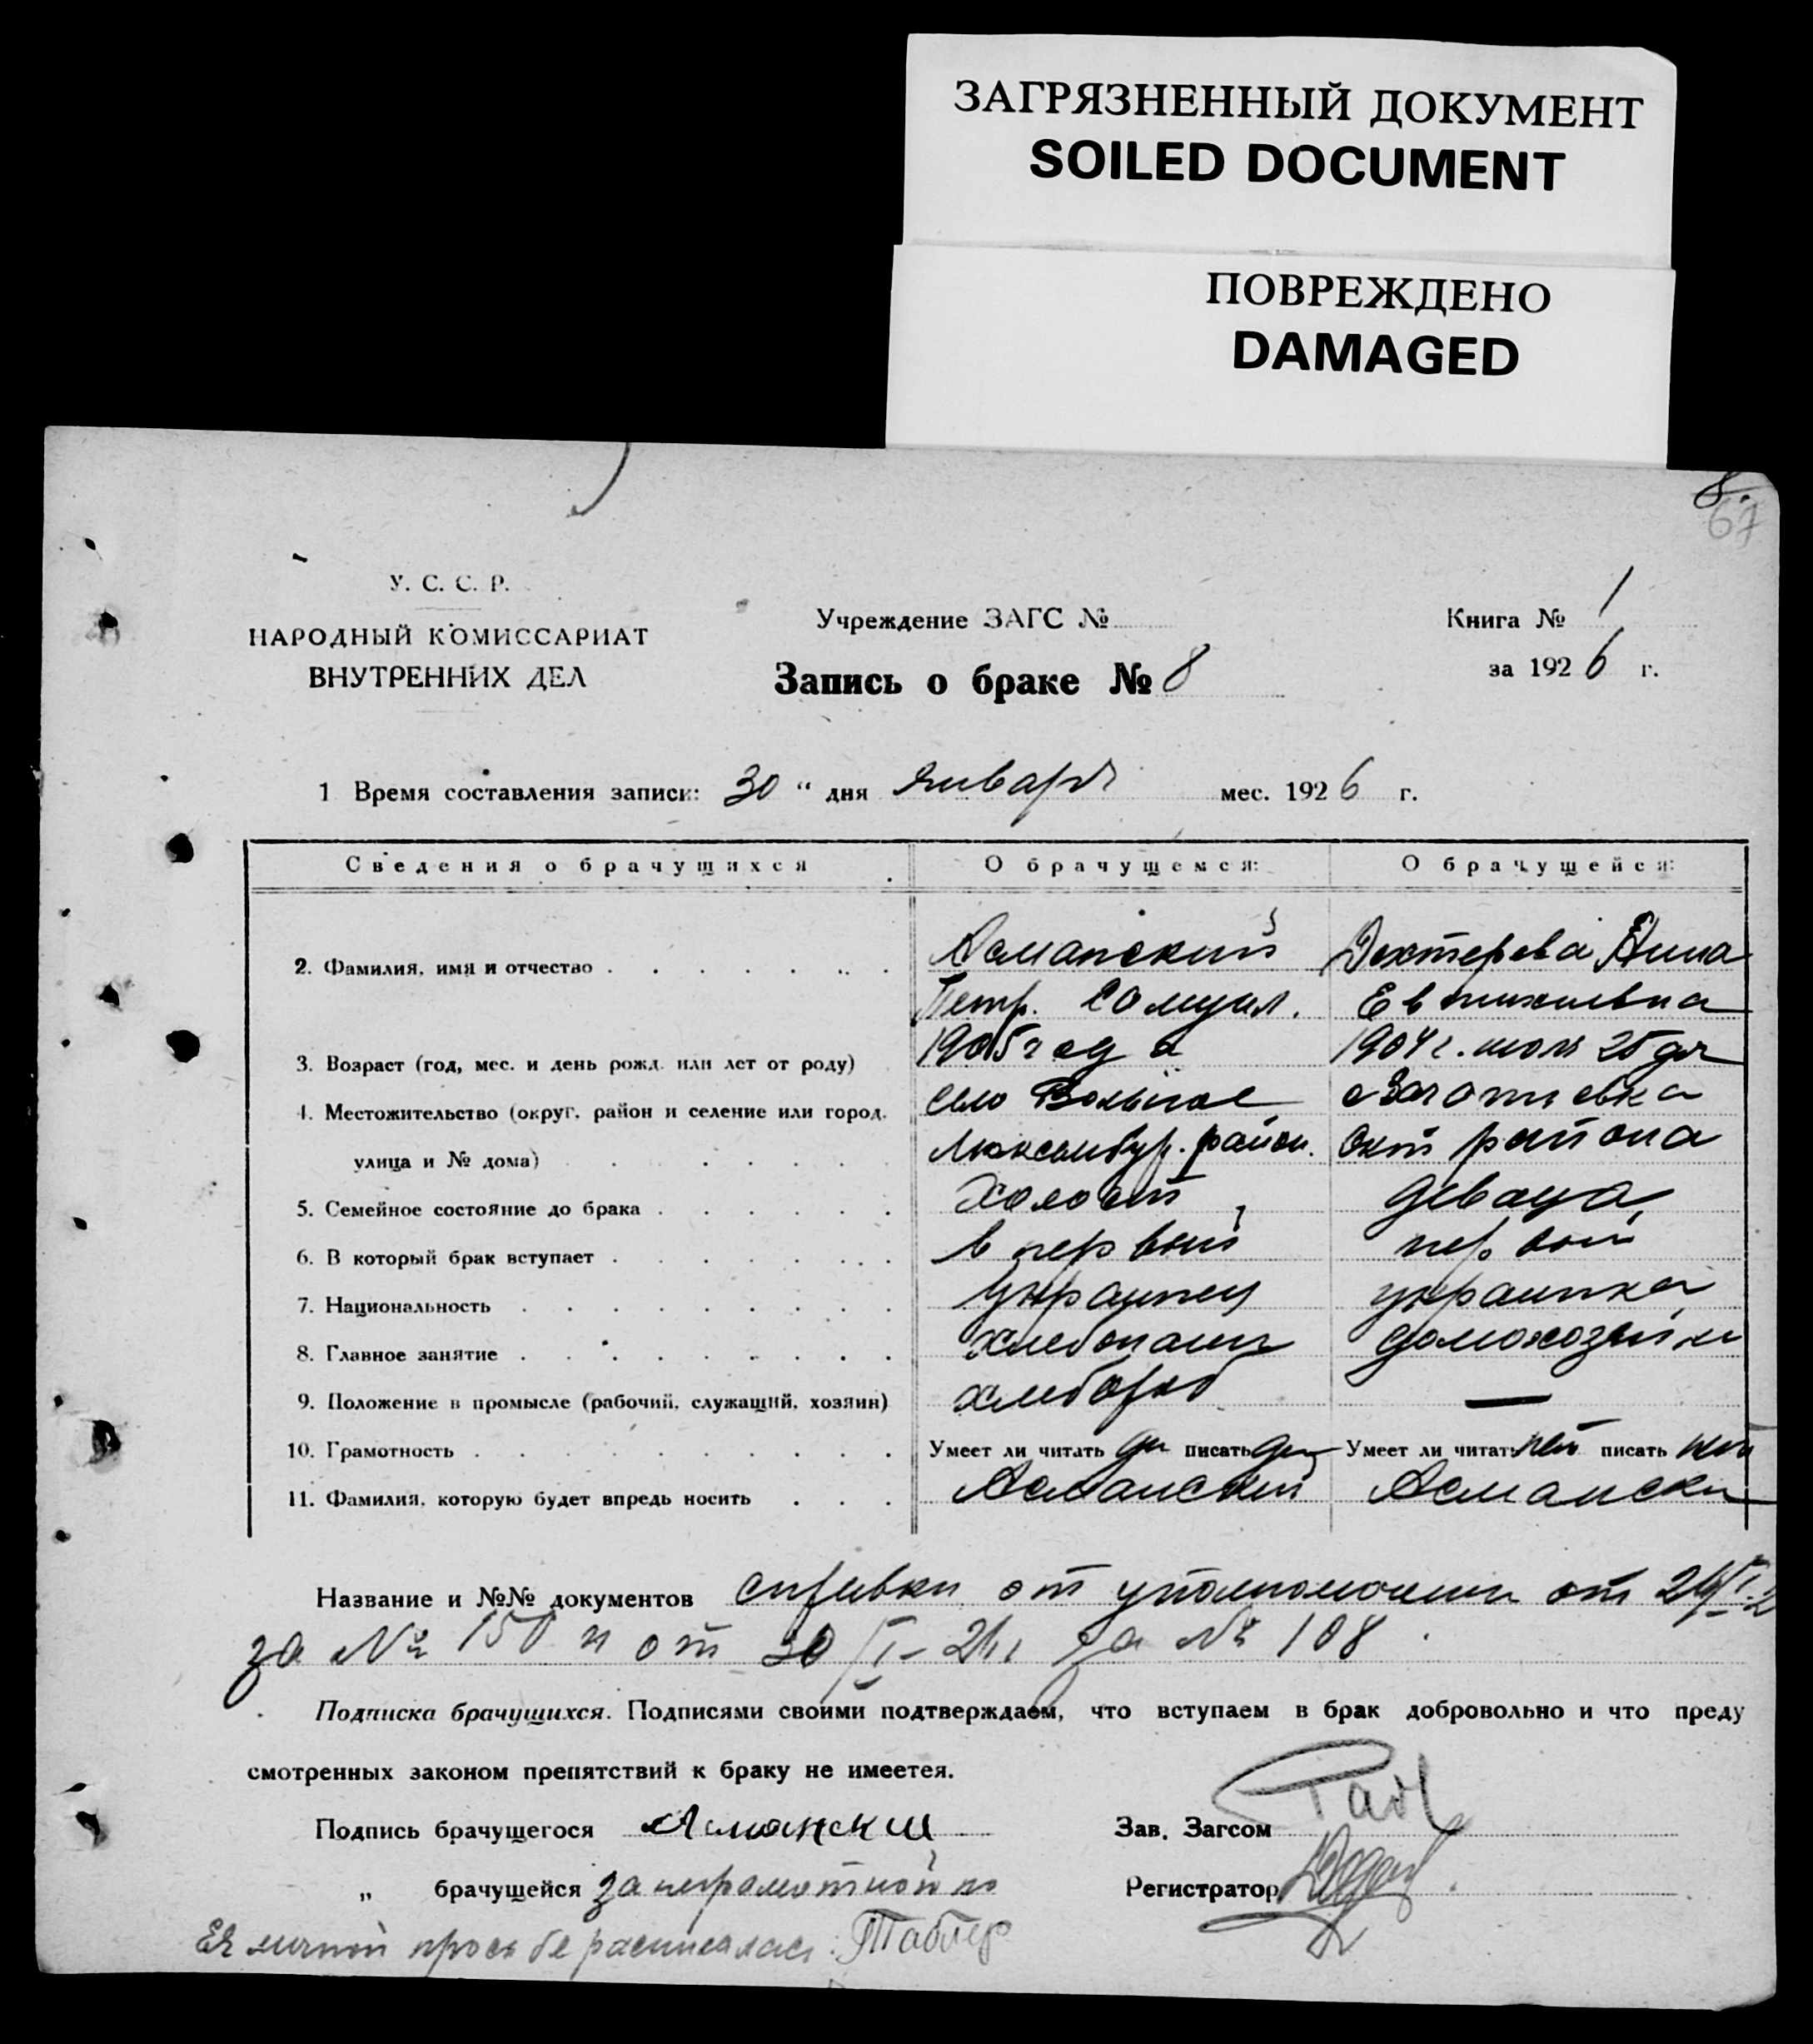 ЗАГРЯЗНЕННЫЙ ДОКУМЕНТ
SOILED DOCUMENT
ПОВРЕЖДЕНО
DAMAGED
8.
67
У. С. С. Р.
НАРОДНЫЙ КОМИССАРИАТ
ВНУТРЕННИХ ДЕЛ
Учреждение ЗАГС №
Запись о браке № 8
Книга № 1
за 1926 г.
1 Время составления записи: 30 " дня января мес. 1926 г.
Сведения о брачущихся О брачущемся: О брачущейся:
2. Фамилия, имя и отчество Асманский Дехтерева Анна
Петр. Самуил. Евтихиевна
3. Возраст (год, мес. и день рожд. или лет от роду) 1905 года 1904 г. июля 25 дня
4. Местожительство (округ, район и селение или город, село Вольное
улица и № дома) Люксембур. район. Окт района
5. Семейное состояние до брака Холост девица
6. В который брак вступает в первый первый
7. Национальность Украинец украинка
8. Главное занятие хлебопашец домохозяйка
9. Положение в промысле (рабочий, служащий, хозяин) хлебороб —
10. Грамотность Умеет ли читать да писать да Умеет ли читать нет писать нет
11. Фамилия, которую будет впредь носить Асманский Асмански
Название и №№ документов справки от от
за № 150 и от 30/I- за № 108
Подписка брачущихся. Подписями своими подтверждаем, что вступаем в брак добровольно и что преду
смотренных законом препятствий к браку не имеется.
Подпись брачущегося Асмански Зав. Загсом
" брачущейся за неграмотной по Регистратор
Ея личной просьбе расписалась: